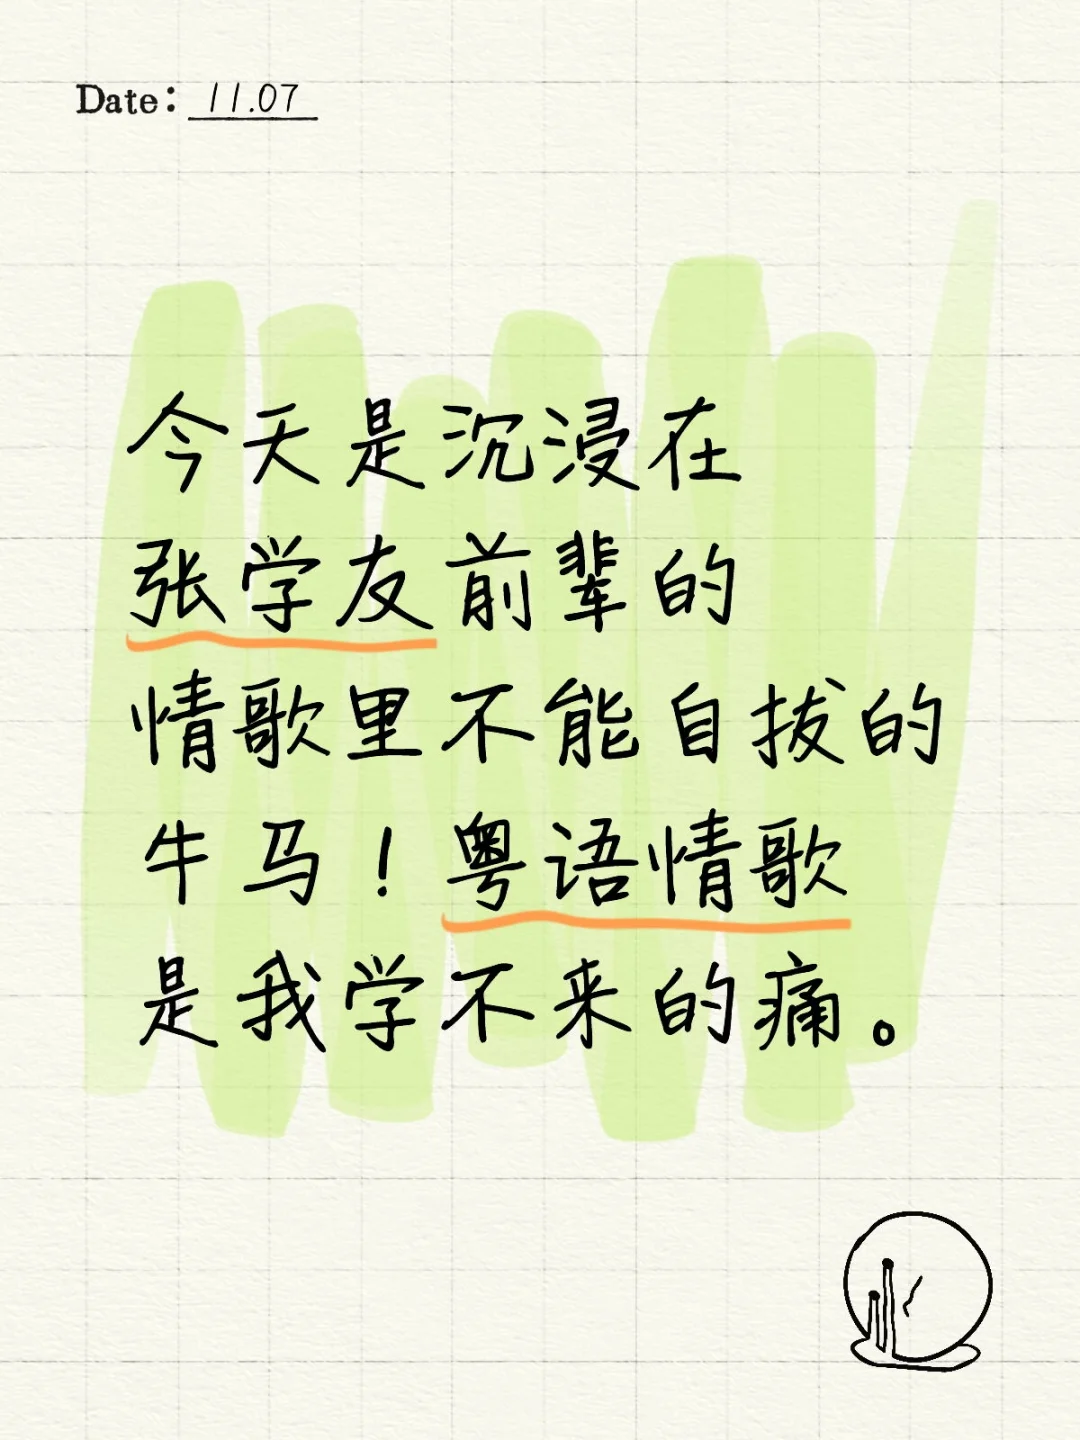 Date: 11.07
今天是沉浸在
张学友前辈的
情歌里不能自拔的
牛马！粤语情歌
是我学不来的痛。